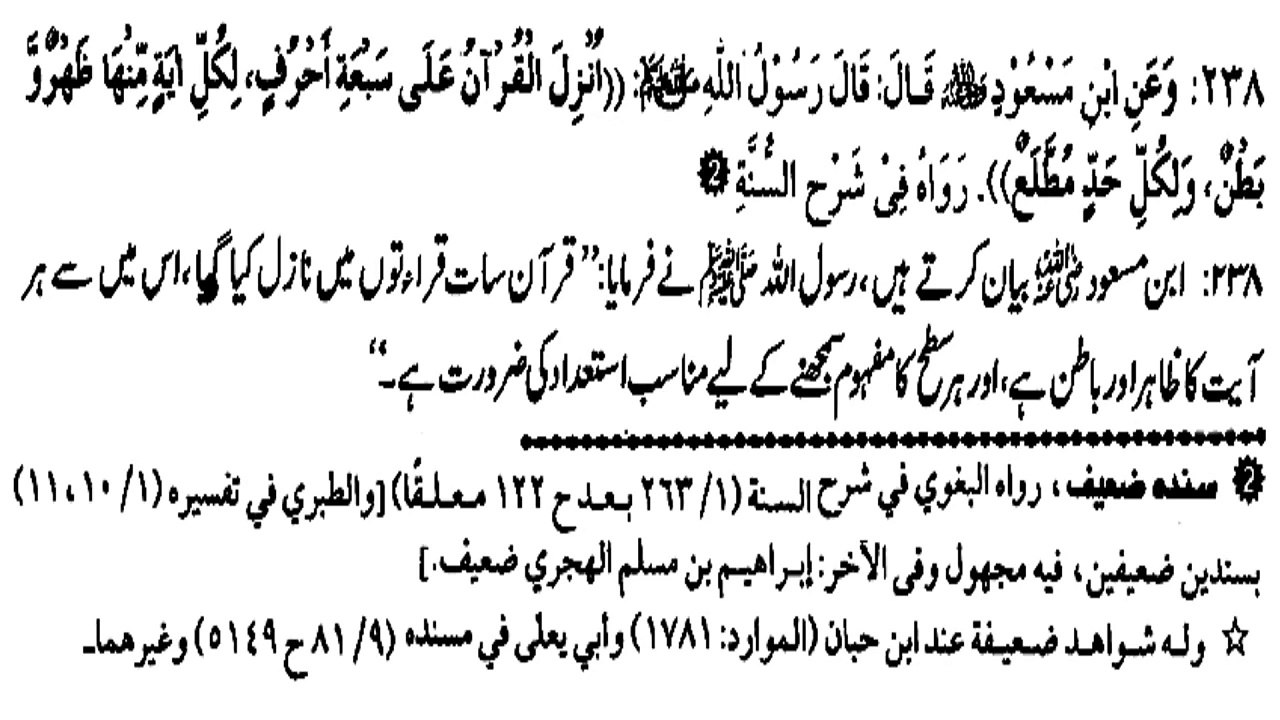 ٢٣٨: وَعَنِ ابْنِ مَسْعُوْدٍ رضی اللہ عنہ قَالَ: قَالَ رَسُوْلُ اللّٰهِ ﷺ: ((اُنْزِلَ الْقُرْآنُ عَلَى سَبْعَةِ أَحْرُفٍ، لِكُلِّ اٰيَةٍ مِّنْهَا ظَهْرٌ وَّ
بَطْنٌ، وَلِكُلِّ حَدٍّ مُطَّلَعٌ)). رَوَاهُ فِيْ شَرْحِ السُّنَّةِ ❷
۲۳۸: ابن مسعود رضی اللہ عنہ بیان کرتے ہیں، رسول اللہ ﷺ نے فرمایا: ”قرآن سات قراءتوں میں نازل کیا گیا، اس میں سے ہر
آیت کا ظاہر اور باطن ہے، اور ہر سطح کا مفہوم سمجھنے کے لیے مناسب استعداد کی ضرورت ہے۔“
❷ سنده ضعيف، رواه البغوي في شرح السنة (١/ ٢٦٣ بعد ح ١٢٢ معلقًا) [والطبري في تفسيره (١/ ١٠، ١١)
بسندين ضعيفين، فيه مجهول وفى الآخر: إبراهيم بن مسلم الهجري ضعيف.]
☆ وله شواهد ضعيفة عند ابن حبان (الموارد: ١٧٨١) وأبي يعلى في مسنده (٩/ ٨١ ح ٥١٤٩) وغيرهما۔